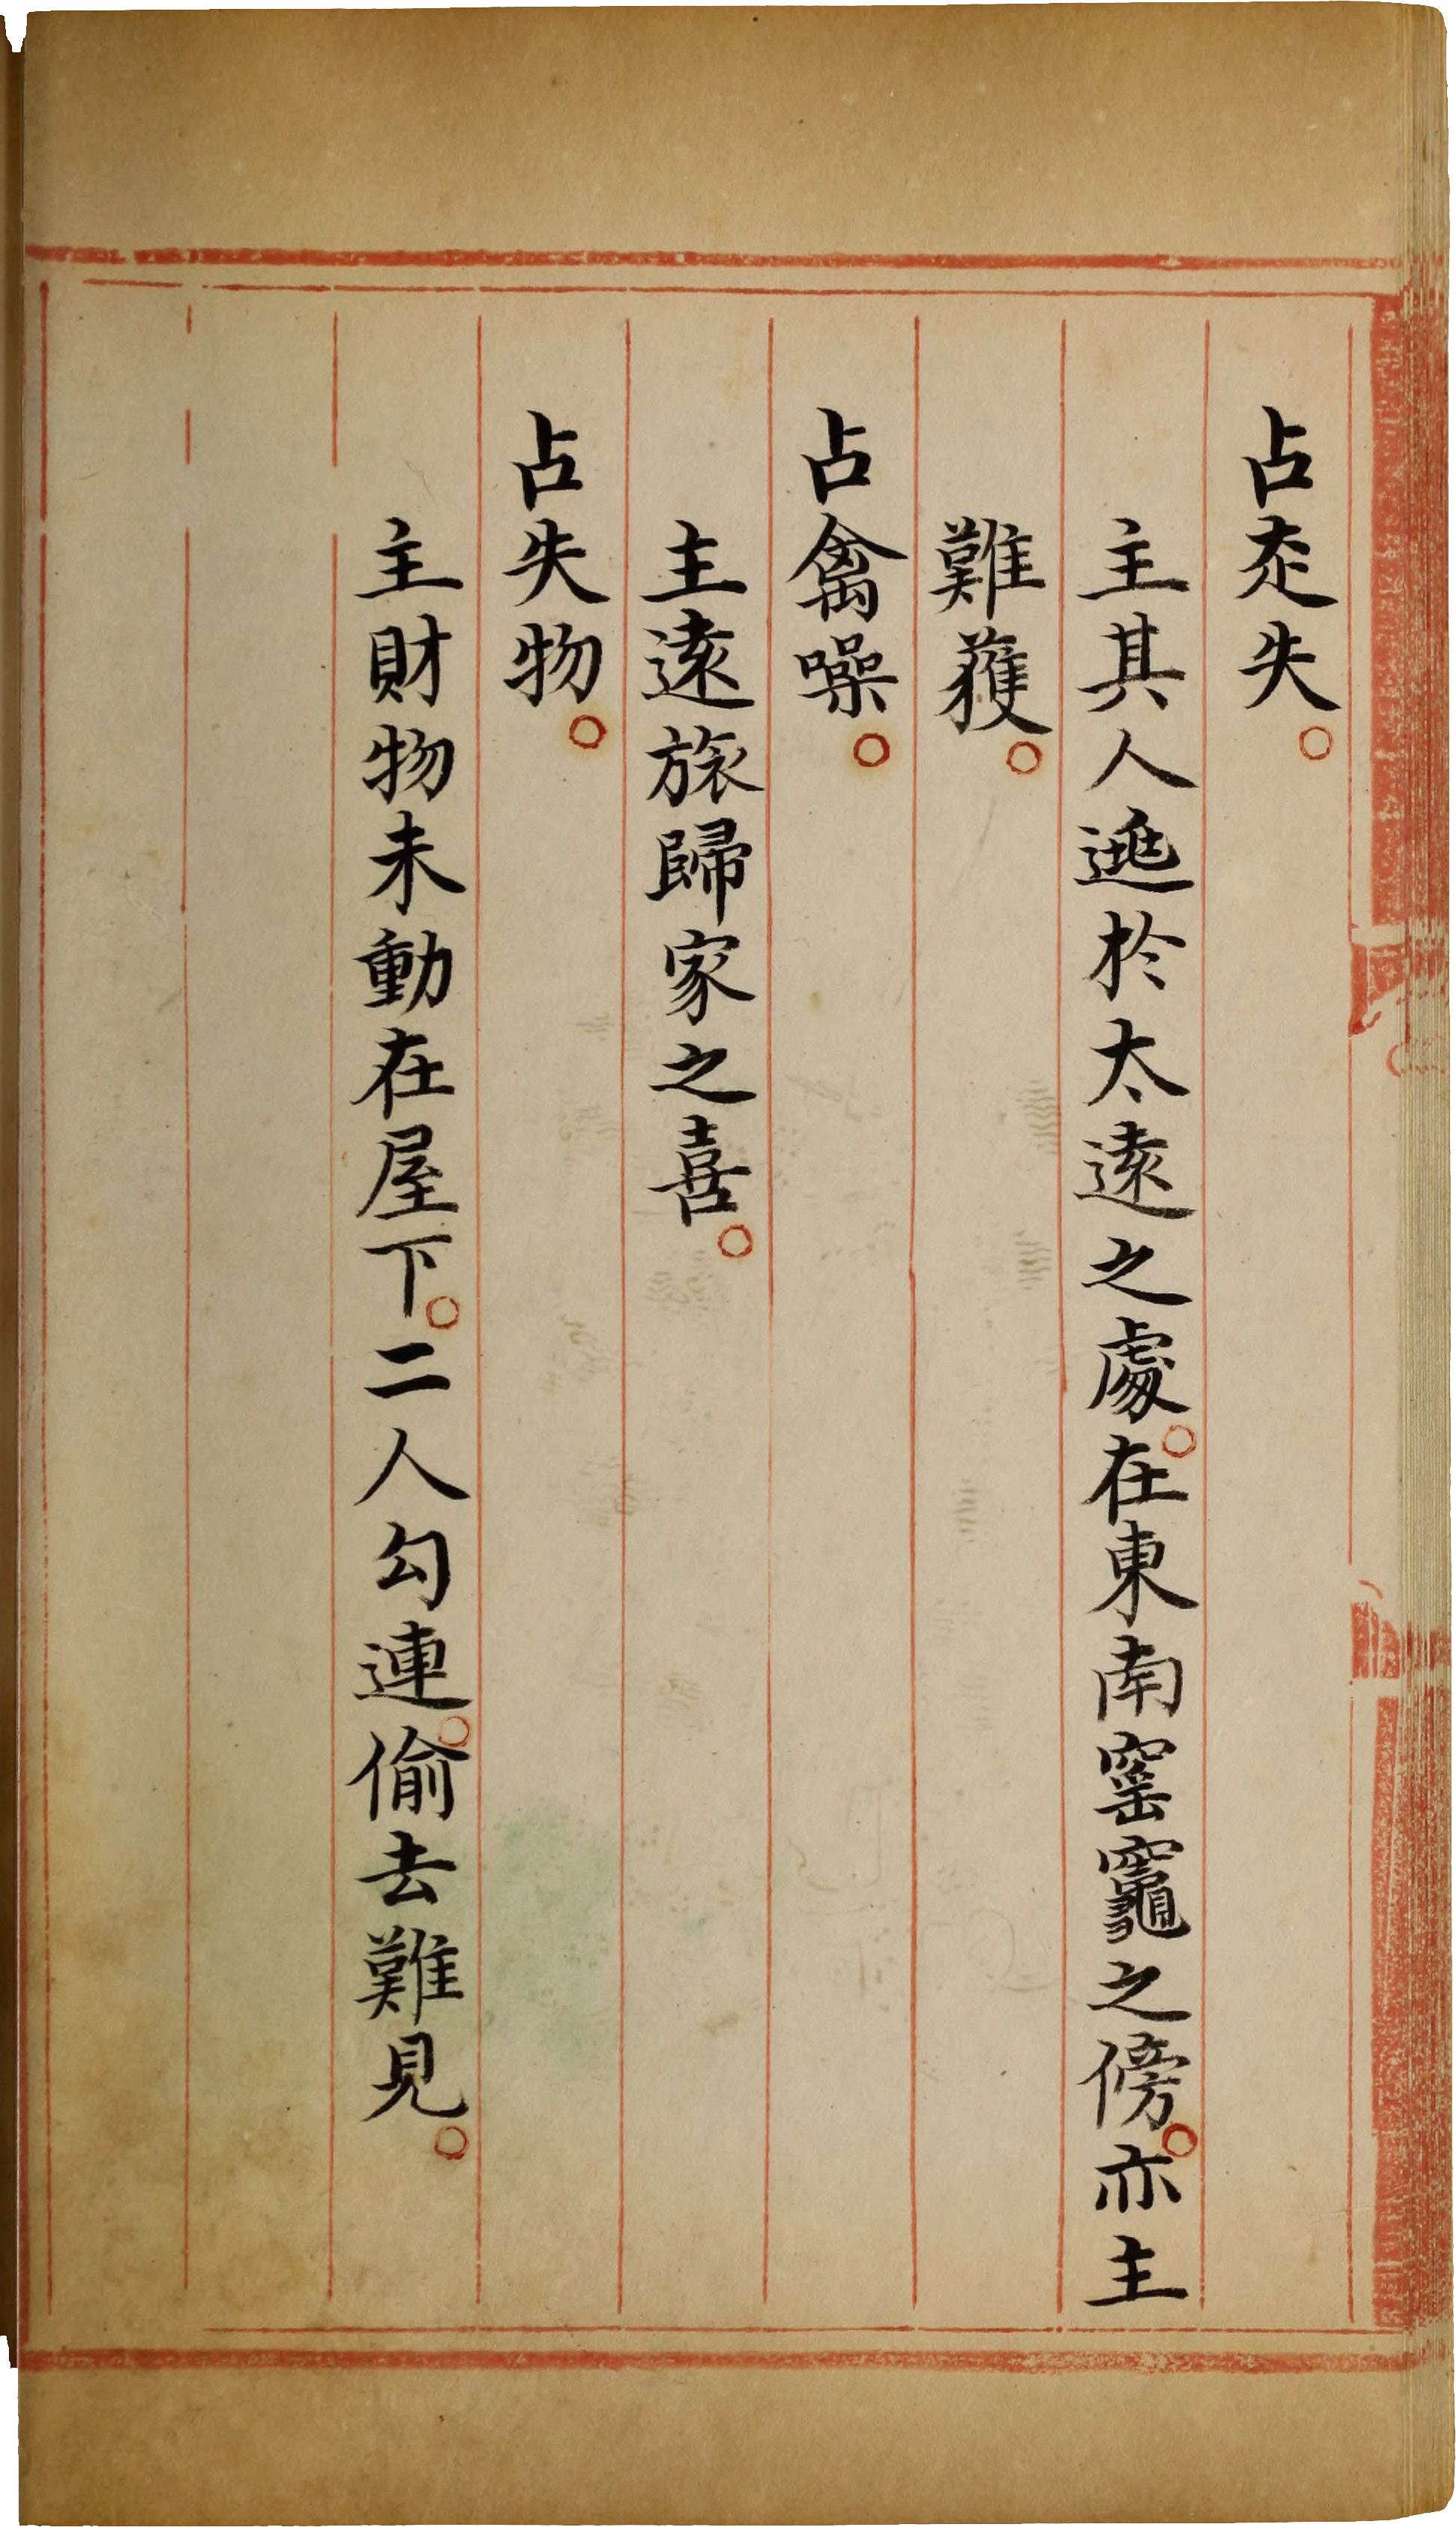 占走失。
主其人逃於太遠之處。在東南窰竈之傍。亦主
難獲。
占禽噪。
主遠旅歸家之喜。
占失物。
主財物未動在屋下。二人勾連。偷去難見。